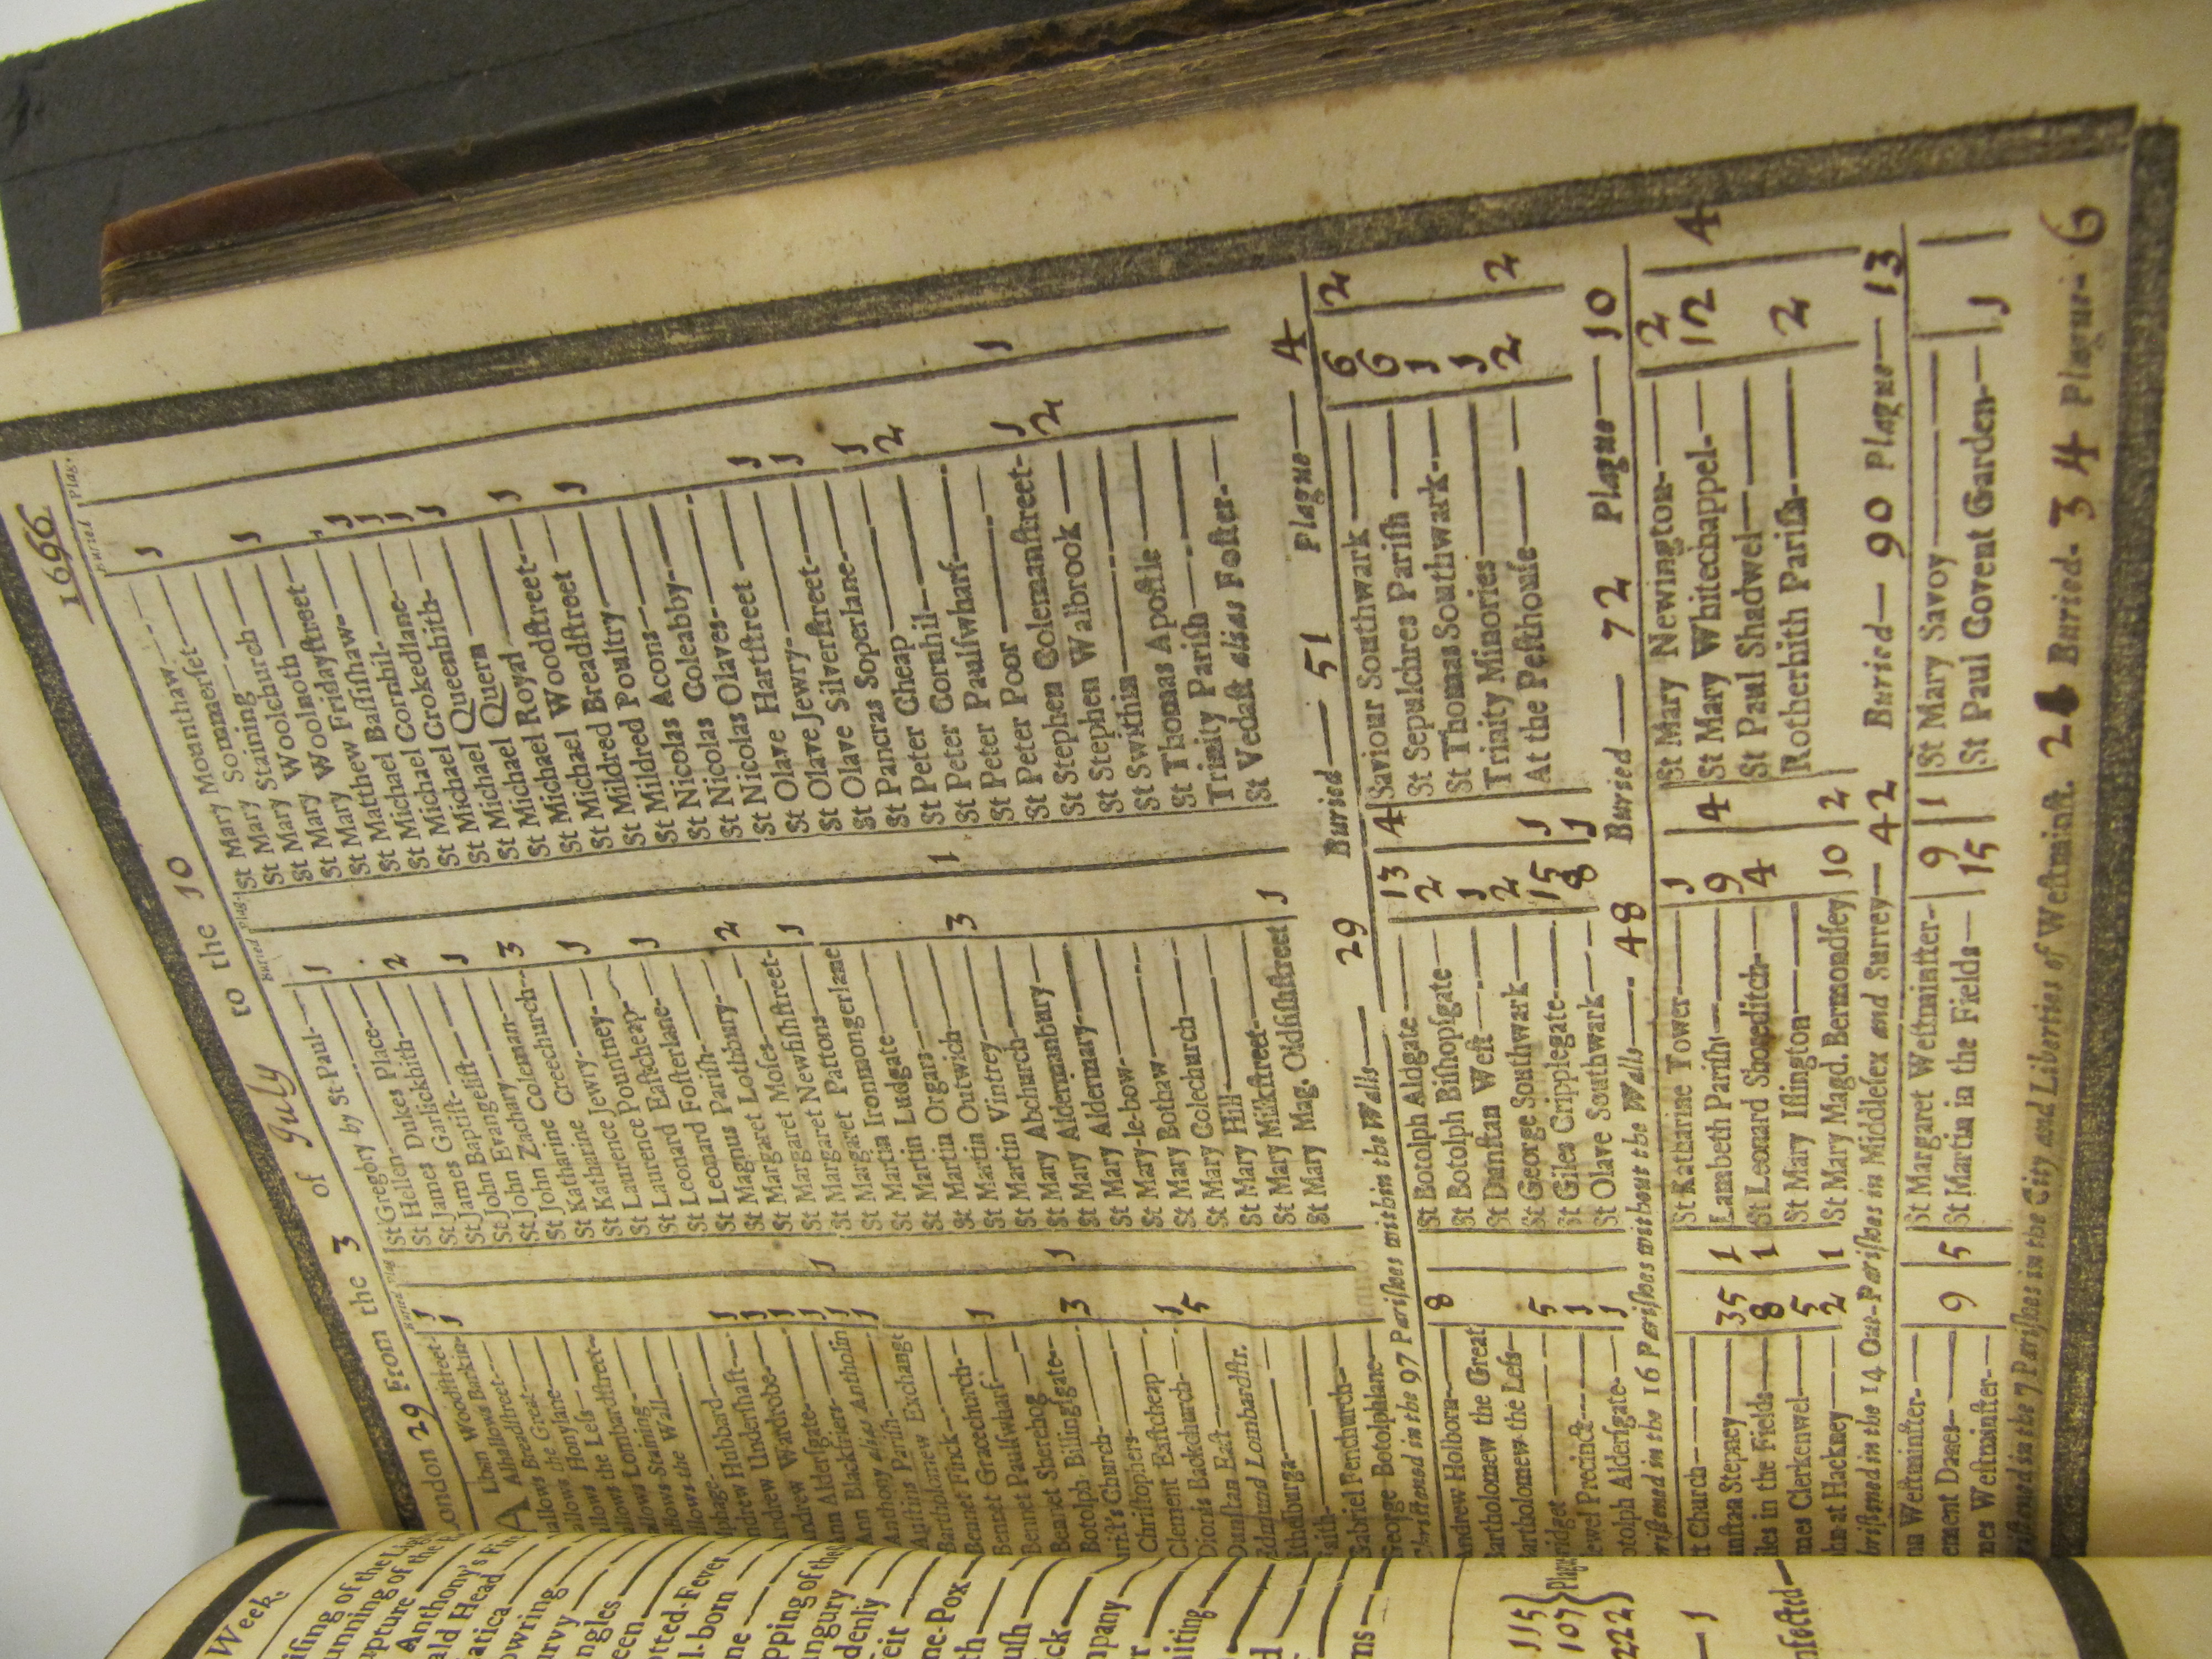 London 29 From the 3 of July to the 10 1666
Buried Plag.
Buried Plag.
Buried Plag.
A
Lban Woodstreet 1
Alhallows Barkin 1
Alhallows Breadstreet
allows the Great
allows Honylane
allows the Less
allows Lombardstreet
allows Staining
allows the Wall
lphage
Andrew Hubbard 1
Andrew Undershaft 1
Andrew Wardrobe 1
Ann Aldersgate 1 1
Ann Blackfriers 1
Anthony alias Antholin 1
Austins Parish
Bartholomew Exchange
Bennet Finck
Bennet Gracechurch 1
Bennet Paulswharf
Bennet Sherehog
Botolph Billingsgate
Christs Church 3 1
Christophers
Clement Eastcheap 1
Dionis Backchurch 5
Dunstan East
Edmund Lombardstr.
Ethelburga
Faith
Gabriel Fenchurch
George Botolphlane
St Gregory by St Paul 1
St Hellen
St James Dukes Place 2
St James Garlickhith
St John Baptist 1
St John Evangelist
St John Zachary 3
St Katharine Coleman
St Katharine Creechurch 1
St Laurence Jewry
St Laurence Pountney 1
St Leonard Eastcheap
St Leonard Fosterlane
St Magnus Parish 2
St Margaret Lothbury
St Margaret Moses 1
St Margaret Newfishstreet
St Margaret Pattons
St Margaret Ironmongerlane
St Martin Ludgate
St Martin Orgars
St Martin Outwich 3 1
St Martin Vintrey
St Mary Abchurch
St Mary Aldermanbury
St Mary Aldermary
St Mary-le-bow
St Mary Bothaw
St Mary Colechurch
St Mary Hill
St Mary Milkstreet
St Mary Mag. Oldfishstreet 1
St Mary Mounthaw 1
St Mary Sommerset
St Mary Staining
St Mary Woolchurch 1
St Mary Woolnoth
St Mary Fridaystreet
St Matthew
St Michael Bassishaw 1
St Michael Cornhil 1
St Michael Crokedlane 1
St Michael Queenhith 1
St Michael Quern
St Michael Royal 1
St Michael Woodstreet
St Mildred Breadstreet 1
St Mildred Poultry
St Nicolas Acons
St Nicolas Coleabby
St Nicolas Olaves
St Olave Hartstreet 1
St Olave Jewry 1
St Olave Silverstreet
St Pancras Soperlane 1
St Peter Cheap 2
St Peter Cornhil
St Peter Paulswharf
St Peter Poor
St Stephen Colemanstreet 1 1
St Stephen Walbrook 2
St Swithin
St Thomas Apostle
Trinity Parish
St Vedast alias Foster
Christened in the 97 Parishes within the Walls 29 Buried 51 Plague 4
Andrew Holborn 8
Bartholomew the Great
Bartholomew the Less
ridget 5
ewel Precinct 1
otolph Aldersgate 1
St Botolph Aldgate 13 4
St Botolph Bishopsgate 2
St Dunstan West 1
St George Southwark 2
St Giles Cripplegate 15 1
St Olave Southwark 8 1
Saviour Southwark 6 2
St Sepulchres Parish 6
St Thomas Southwark 1
Trinity Minories 1
At the Pesthouse 2 2
ristened in the 16 Parishes without the Walls 48 Buried 72 Plague 10
t Church
unstan Stepney 35 1
iles in the Fields 8 1
mes Clerkenwel 5
hn at Hackney 2 1
St Katharine Tower 1
Lambeth Parish 9 4
St Leonard Shoreditch 4
St Mary Islington
St Mary Magd. Bermondsey 10 2
St Mary Newington 2
St Mary Whitechappel 12 4
St Paul Shadwel
Rotherhith Parish 2
hristned in the 14 Out-Parishes in Middlesex and Surrey 42 Buried 90 Plague 13
na Westminster
ement Danes 9 5
mes Westminster
St Margaret Westminster 9 1
St Martin in the Fields 15
St Mary Savoy
St Paul Covent Garden 1
ristned in the 7 Parishes in the City and Liberties of Westminst. Buried 34 Plague 6
Week.
Anthony's
ald Head
atica
owring
urvy
ngles
een
otted-Fever
l-born
ne
pping of the
angury
ddenly
feit
ne-Pox
th
ush
ck
mpany
r
iting
d
ms
115
107
222
Plag
1
nfected